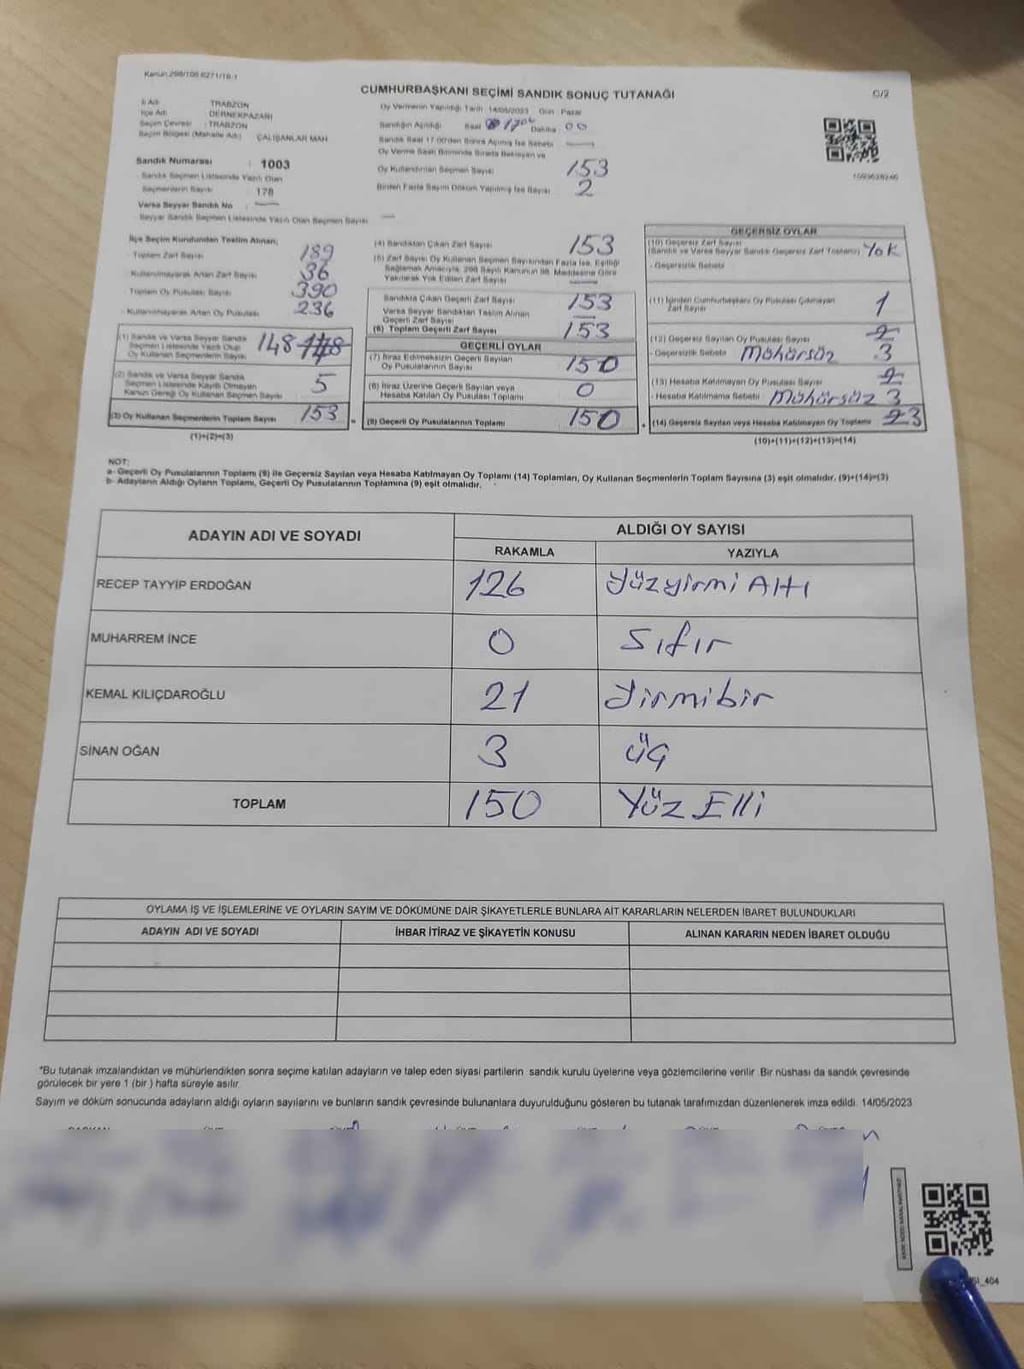 Kanun:298/105 6271/18-1
CUMHURBAŞKANI SEÇİMİ SANDIK SONUÇ TUTANAĞI
C/2
İl Adı : TRABZON
İlçe Adı : DERNEKPAZARI
Seçim Çevresi : TRABZON
Seçim Bölgesi (Mahalle Adı) : ÇALIŞANLAR MAH
Sandık Numarası : 1003
Sandık Seçmen Listesinde Yazılı Olan
Seçmenlerin Sayısı : 178
Varsa Seyyar Sandık No : —
Seyyar Sandık Seçmen Listesinde Yazılı Olan Seçmen Sayısı : —
Oy Vermenin Yapıldığı Tarih : 14/05/2023 Gün : Pazar
Sandığın Açıldığı Saat 17 Dakika : 00
Sandık Saat 17.00'den Sonra Açılmış İse Sebebi —
Oy Verme Saati Bitiminde Sırada Bekleyen ve
Oy Kullandırılan Seçmen Sayısı 153
Birden Fazla Sayım Döküm Yapılmış İse Sayısı 2
İlçe Seçim Kurulundan Teslim Alınan;
- Toplam Zarf Sayısı 189
- Kullanılmayarak Artan Zarf Sayısı 36
- Toplam Oy Pusulası Sayısı 390
- Kullanılmayarak Artan Oy Pusulası 236
(1) Sandık ve Varsa Seyyar Sandık
Seçmen Listesinde Yazılı Olup
Oy Kullanan Seçmenlerin Sayısı 148 148
(2) Sandık ve Varsa Seyyar Sandık
Seçmen Listesinde Kayıtlı Olmayan
Kanun Gereği Oy Kullanan Seçmen Sayısı 5
(3) Oy Kullanan Seçmenlerin Toplam Sayısı 153
(1)+(2)=(3)
(4) Sandıktan Çıkan Zarf Sayısı 153
(5) Zarf Sayısı Oy Kullanan Seçmen Sayısından Fazla İse, Eşitliği
Sağlamak Amacıyla, 298 Sayılı Kanunun 98. Maddesine Göre
Yakılarak Yok Edilen Zarf Sayısı —
Sandıkta Çıkan Geçerli Zarf Sayısı 153
Varsa Seyyar Sandıktan Teslim Alınan
Geçerli Zarf Sayısı —
(6) Toplam Geçerli Zarf Sayısı 153
GEÇERLİ OYLAR
(7) İtiraz Edilmeksizin Geçerli Sayılan
Oy Pusulalarının Sayısı 150
(8) İtiraz Üzerine Geçerli Sayılan veya
Hesaba Katılan Oy Pusulası Toplamı 0
(9) Geçerli Oy Pusulalarının Toplamı 150
GEÇERSİZ OYLAR
(10) Geçersiz Zarf Sayısı
(Sandık ve Varsa Seyyar Sandık Geçersiz Zarf Toplamı) Yok
- Geçersizlik Sebebi
(11) İçinden Cumhurbaşkanı Oy Pusulası Çıkmayan
Zarf Sayısı 1
(12) Geçersiz Sayılan Oy Pusulası Sayısı 2
- Geçersizlik Sebebi Mühürsüz 3
(13) Hesaba Katılmayan Oy Pusulası Sayısı 2
- Hesaba Katılmama Sebebi Mühürsüz 3
(14) Geçersiz Sayılan veya Hesaba Katılmayan Oy Toplamı 2 3
(10)+(11)+(12)+(13)=(14)
NOT:
a- Geçerli Oy Pusulalarının Toplamı (9) ile Geçersiz Sayılan veya Hesaba Katılmayan Oy Toplamı (14) Toplamları, Oy Kullanan Seçmenlerin Toplam Sayısına (3) eşit olmalıdır. (9)+(14)=(3)
b- Adayların Aldığı Oyların Toplamı, Geçerli Oy Pusulalarının Toplamına (9) eşit olmalıdır.
ADAYIN ADI VE SOYADI
ALDIĞI OY SAYISI
RAKAMLA YAZIYLA
RECEP TAYYİP ERDOĞAN 126 Yüzyirmi Altı
MUHARREM İNCE 0 Sıfır
KEMAL KILIÇDAROĞLU 21 Yirmibir
SİNAN OĞAN 3 üç
TOPLAM 150 Yüz Elli
OYLAMA İŞ VE İŞLEMLERİNE VE OYLARIN SAYIM VE DÖKÜMÜNE DAİR ŞİKAYETLERLE BUNLARA AİT KARARLARIN NELERDEN İBARET BULUNDUKLARI
ADAYIN ADI VE SOYADI İHBAR İTİRAZ VE ŞİKAYETİN KONUSU ALINAN KARARIN NEDEN İBARET OLDUĞU
*Bu tutanak imzalandıktan ve mühürlendikten sonra seçime katılan adayların ve talep eden siyasi partilerin sandık kurulu üyelerine veya gözlemcilerine verilir. Bir nüshası da sandık çevresinde
görülecek bir yere 1 (bir) hafta süreyle asılır.
Sayım ve döküm sonucunda adayların aldığı oyların sayılarını ve bunların sandık çevresinde bulunanlara duyurulduğunu gösteren bu tutanak tarafımızdan düzenlenerek imza edildi. 14/05/2023